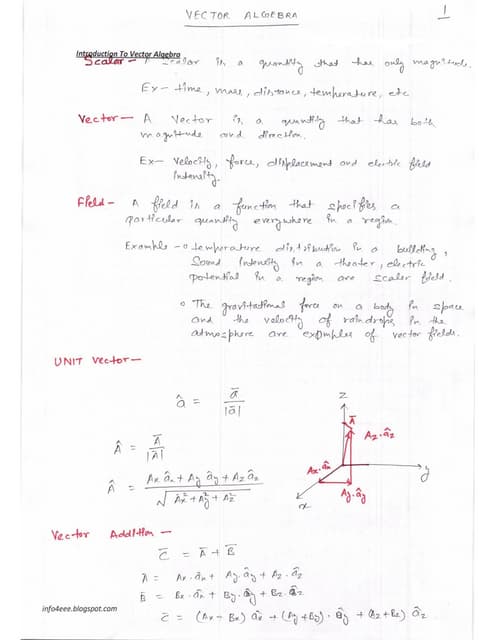 VECTOR ALGEBRA
1
Introduction To Vector Algebra
Scalar - A scalar is a quantity that has only magnitude.
Ex - time, mass, distance, temperature, etc
Vector - A Vector is a quantity that has both
magnitude and direction.
Ex - Velocity, force, displacement and electric field
intensity.
Field - A field is a function that specifies a
particular quantity everywhere in a region.
Example - o temperature distribution in a building,
Sound intensity in a theater, electric
potential in a region are scalar field.
o The gravitational force on a body in space
and the velocity of raindrops in the
atmosphere are examples of vector fields.
UNIT Vector -
â = ā / |ā|
Â = Ā / |Ā|
Â = Ax âx + Ay ây + Az âz / √Ax² + Ay² + Az²
z
Ā
Az·âz
Ax·âx
y
Ay·ây
x
Vector Addition -
C̄ = Ā + B̄
Ā = Ax·âx + Ay·ây + Az·âz
B̄ = Bx·âx + By·ây + Bz·âz
info4eee.blogspot.com
C̄ = (Ax - Bx) âx + (Ay + By)·ây + (Az + Bz) âz